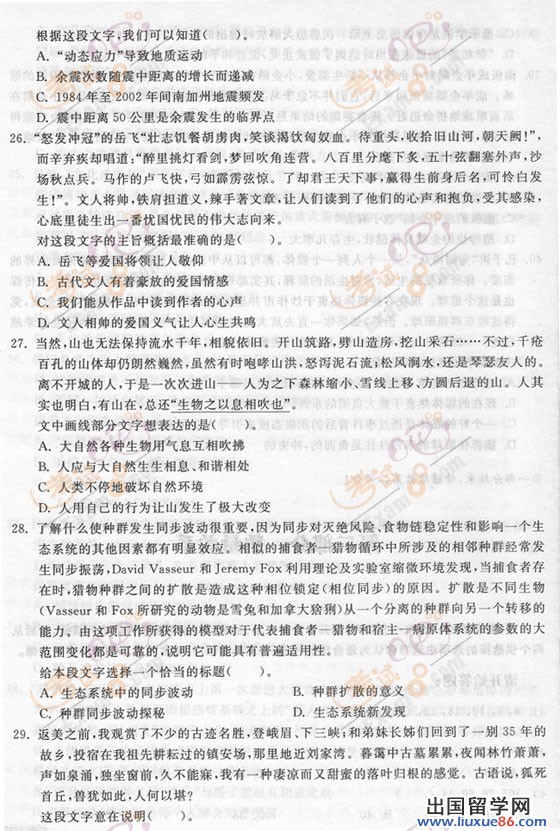 根据这段文字，我们可以知道(　　)。
A. “动态应力”导致地质运动
B. 余震次数随震中距离的增长而递减
C. 1984 年至 2002 年间南加州地震频发
D. 震中距离 50 公里是余震发生的临界点
26. “怒发冲冠”的岳飞“壮志饥餐胡虏肉，笑谈渴饮匈奴血。待重头，收拾旧山河，朝天阙！”，
而辛弃疾却唱道：“醉里挑灯看剑，梦回吹角连营。八百里分麾下炙，五十弦翻塞外声，沙
场秋点兵。马作的卢飞快，弓如霹雳弦惊。了却君王天下事，赢得生前身后名，可怜白发
生！”。文人将帅，铁肩担道义，辣手著文章，让人们读到了他们的心声和抱负，受其感染，
心底里徒生出一番忧国忧民的伟大志向来。
对这段文字的主旨概括最准确的是(　　)。
A. 岳飞等爱国将领让人敬仰
B. 古代文人有着豪放的爱国情感
C. 我们能从作品中读到作者的心声
D. 文人相帅的爱国义气让人心生共鸣
27. 当然，山也无法保持流水千年，相貌依旧。开山筑路，劈山造房，挖山采石……不过，千疮
百孔的山体却仍朗然巍然，虽然有时咆哮山洪，怒泻泥石流；松风涧水，还是琴瑟友人的。
离不开城的，于是一次次进山——人为之下森林缩小、雪线上移、方圆后退的山。人其
实也明白，有山在，总还“生物之以息相吹也”。
文中画线部分文字想表达的是(　　)。
A. 大自然各种生物用气息互相吹拂
B. 人应与大自然生生相息、和谐相处
C. 人类不停地破坏自然环境
D. 人用自己的行为让山发生了极大改变
28. 了解什么使种群发生同步波动很重要，因为同步对灭绝风险、食物链稳定性和影响一个生
态系统的其他因素都有明显影响。相似的捕食者—猎物循环中所涉及的相邻种群经常发
生同步振荡，David Vasseur 和 Jeremy Fox 利用理论及实验室缩微环境发现，当捕食者存
在时，猎物种群之间的扩散是造成这种相位锁定(相位同步)的原因。扩散是不同生物
(Vasseur 和 Fox 所研究的动物是雪兔和加拿大猞猁)从一个分离的种群向另一个转移的
能力。由这项工作所获得的模型对于代表捕食者—猎物和宿主—病原体系统的参数的大
范围变化都是可靠的，说明它可能具有普遍适用性。
给本段文字选择一个恰当的标题(　　)。
A. 生态系统中的同步波动　　B. 种群扩散的意义
C. 种群同步波动探秘　　D. 生态系统新发现
29. 返美之前，我观赏了不少的古迹名胜，登峨眉、下三峡，和弟妹长姊们回到了一别 35 年的
故乡，投宿在我祖先耕耘过的镇安场，那里地近刘家湾。暮霭中古墓累累，夜闻林竹萧萧，
声如泉涌，独坐窗前，久不能寐，我有一种凄凉而又甜蜜的落叶归根的感觉。古语说，狐死
首丘，兽犹如此，人何以堪？
这段文字意在说明(　　)。
考试
Exam8.com
出国留学网
www.liuxue86.com